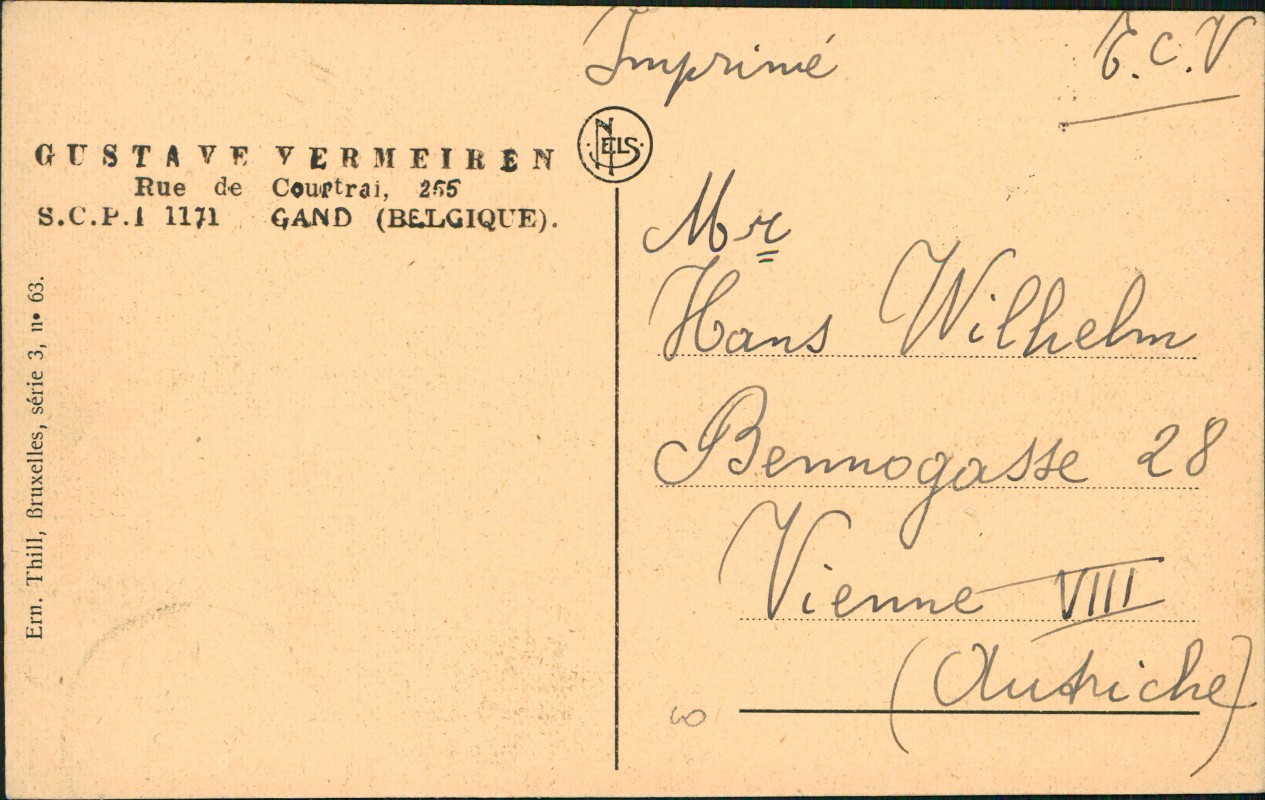 Imprimé
T.C.V
NELS
GUSTAVE VERMEIREN
Rue de Courtrai, 255
S.C.P.I 1171 GAND (BELGIQUE).
Ern. Thill, Bruxelles, série 3, n• 63.
Mr
Hans Wilhelm
Bennogasse 28
Vienne VIII
(Autriche)